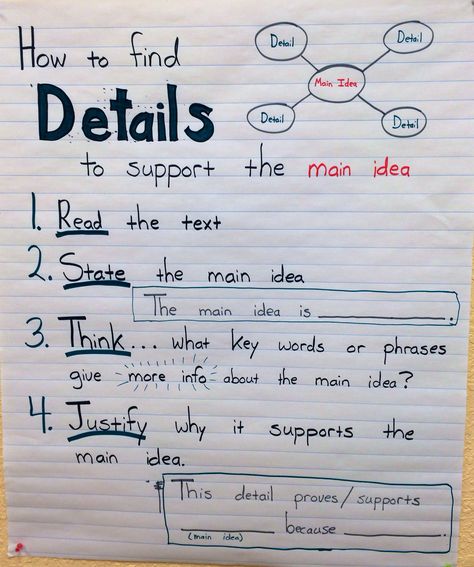 How to find
Details
to support the main idea
Detail
Detail
Main Idea
Detail
Detail
1. Read the text
2. State the main idea
The main idea is ________.
3. Think... what key words or phrases
give more info about the main idea?
4. Justify why it supports the
main idea.
This detail proves/supports
________ because ________.
(main idea)